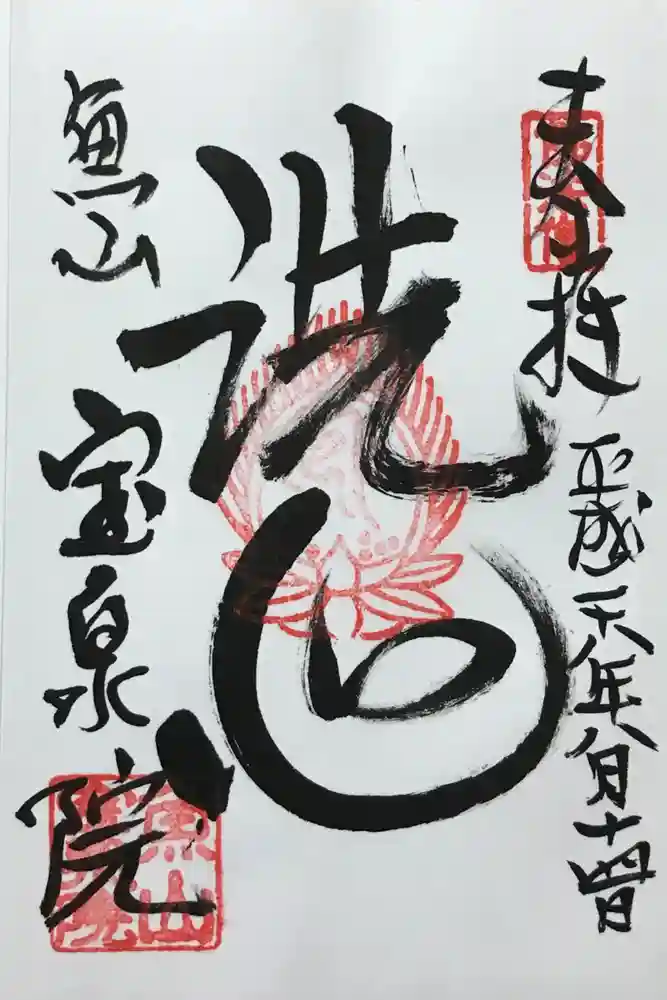 奉拝 平成二十八年八月十四日
洗心
魚山 宝泉院